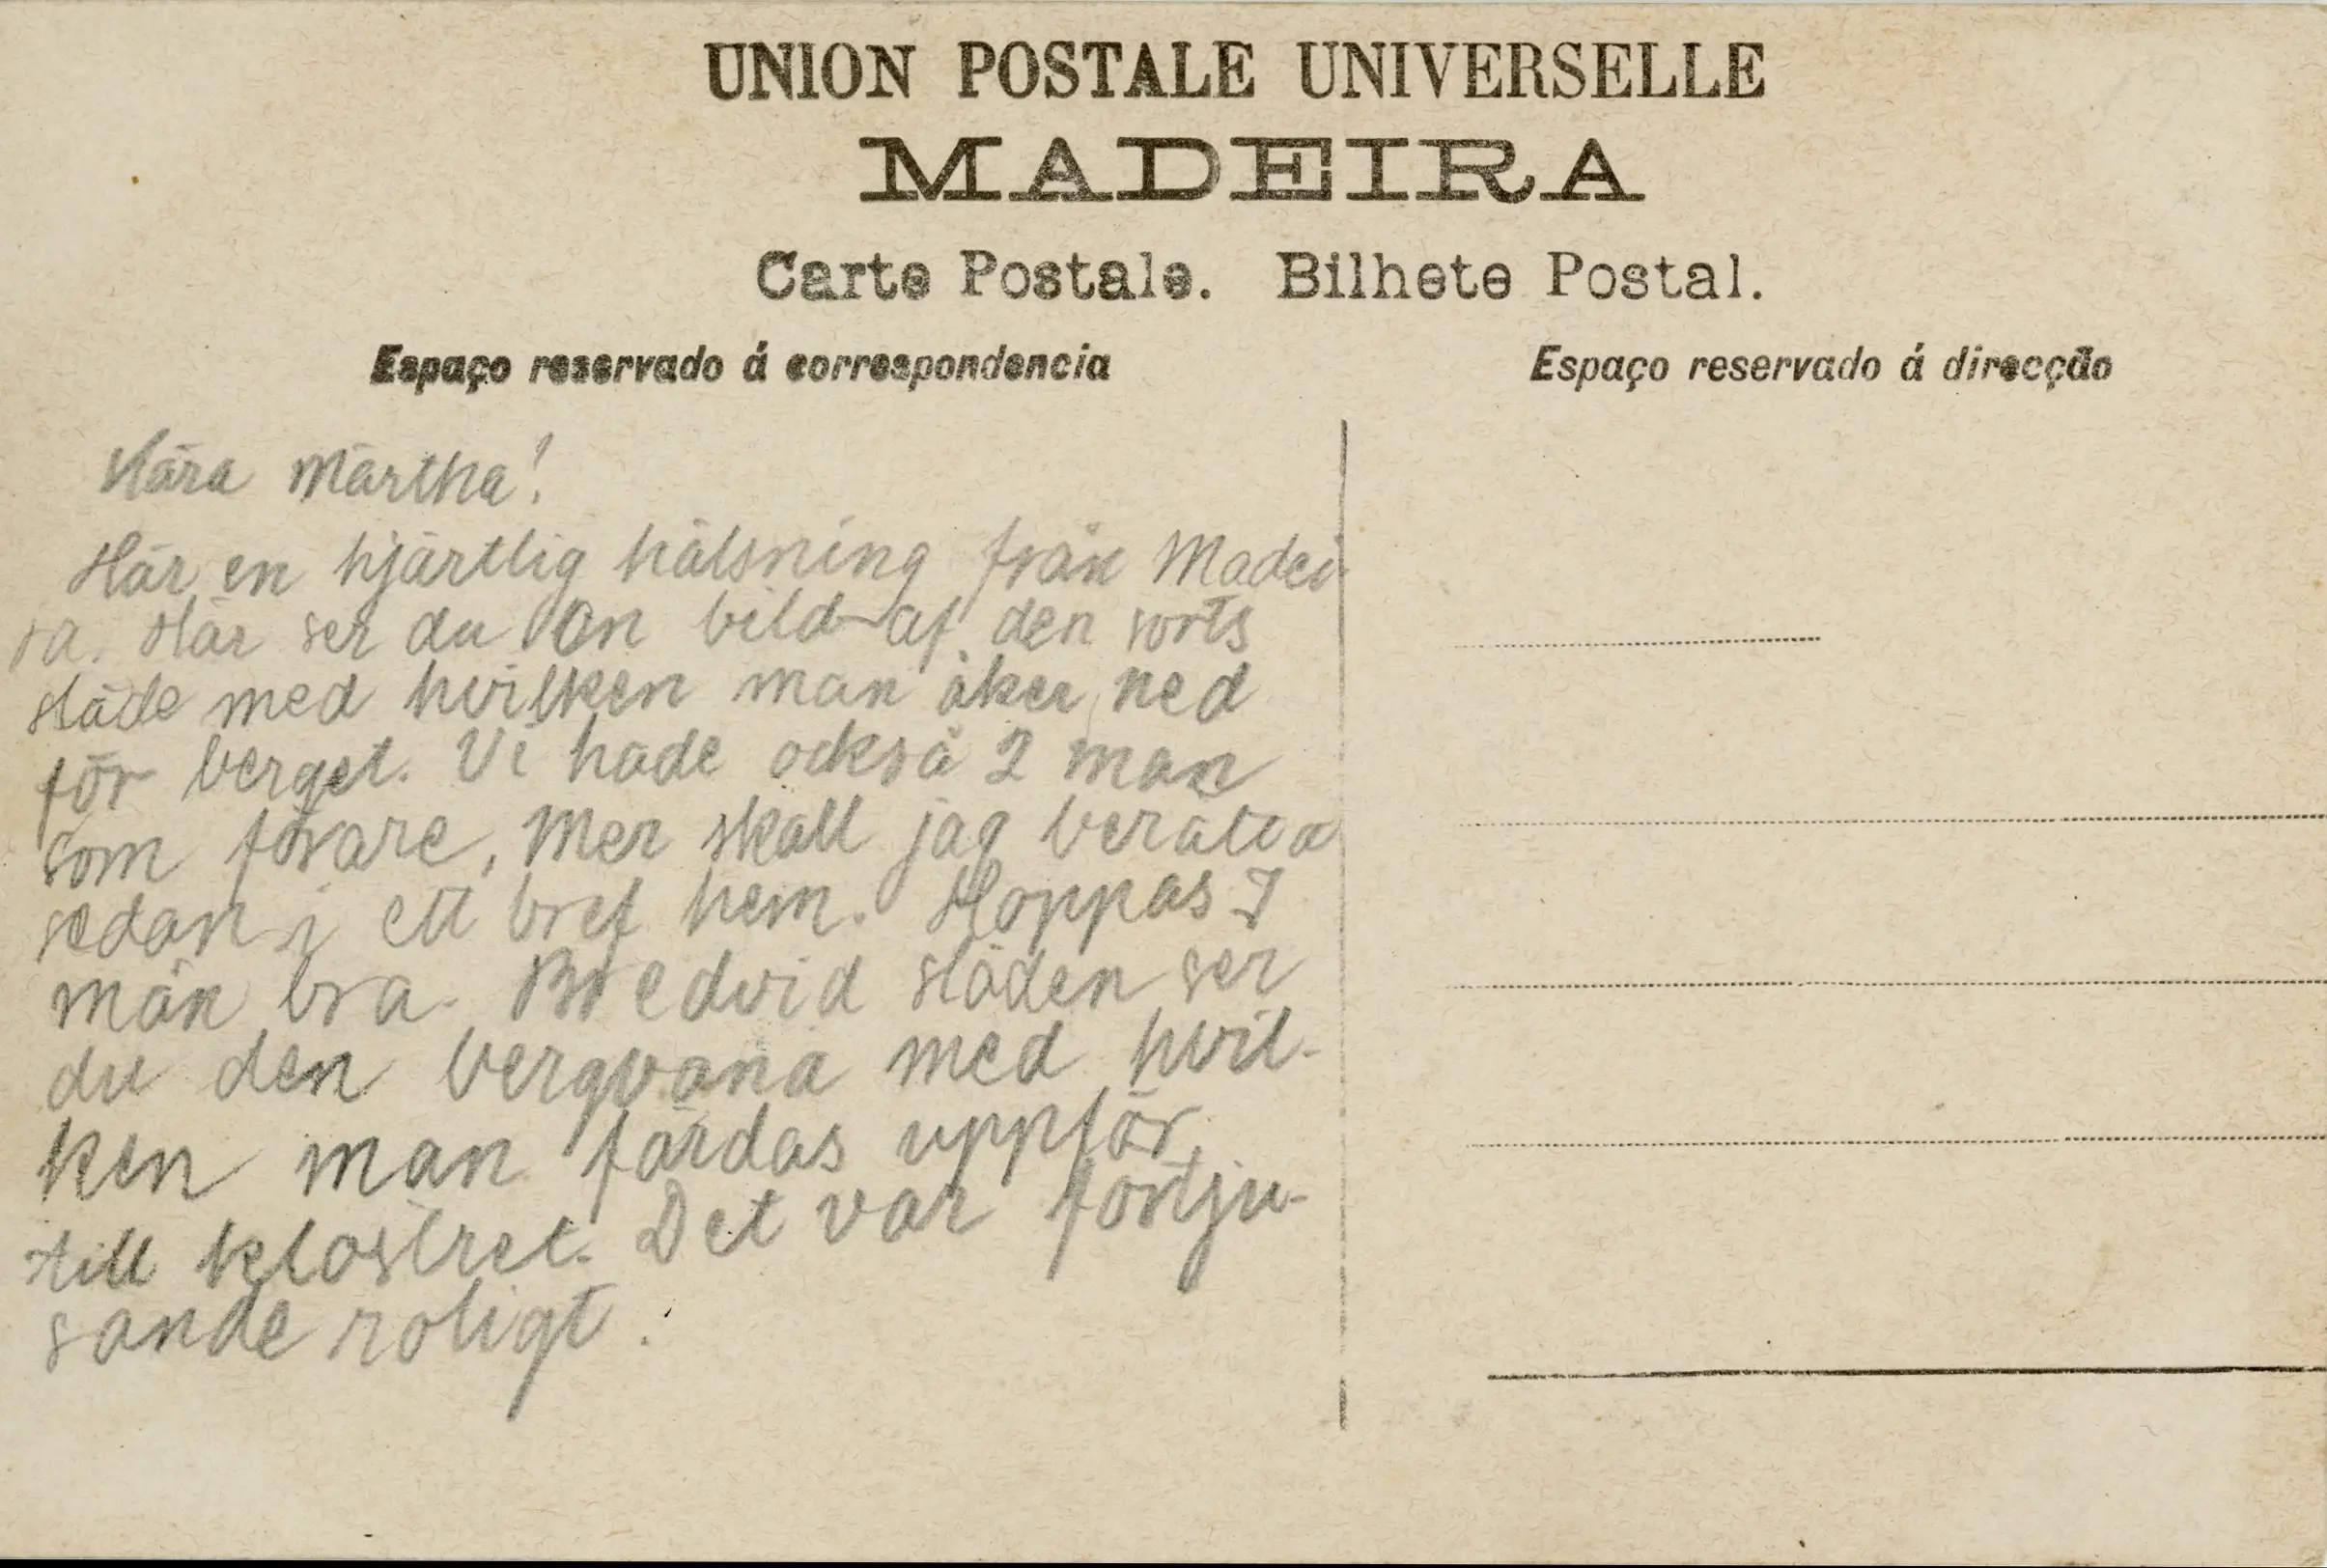 UNION POSTALE UNIVERSELLE
MADEIRA
Carte Postale. Bilhete Postal.
Espaço reservado á correspondencia
Espaço reservado á direcção
Kära Märtha!
Här en hjärtlig hälsning från Madei-
ra. Här ser du en bild af den sorts
släde med hvilken man åker ned
för berget. Vi hade också 2 män
som förare. Mer skall jag berätta
sedan i ett bref hem. Hoppas I
mån bra. Bredvid släden ser
du den bergvana med hvil-
ken man färdas uppför
till klostret. Det var förtju-
sande roligt.